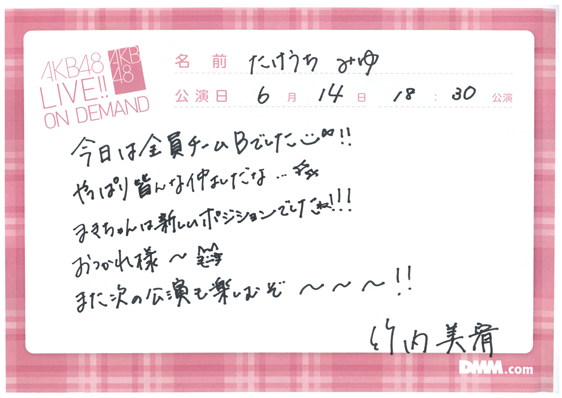 AKB48
LIVE!!
ON DEMAND
AKB
48
名前 たけうち みゆ
公演日 6月 14日 18:30 公演
今日は全員チームBでした!!
やっぱり皆んな仲良しだな…
まきちゃんは新しいポジションでしたね!!!
おつかれ様〜
また次の公演も楽しむぞ〜〜〜!!
竹内美宥
DMM.com